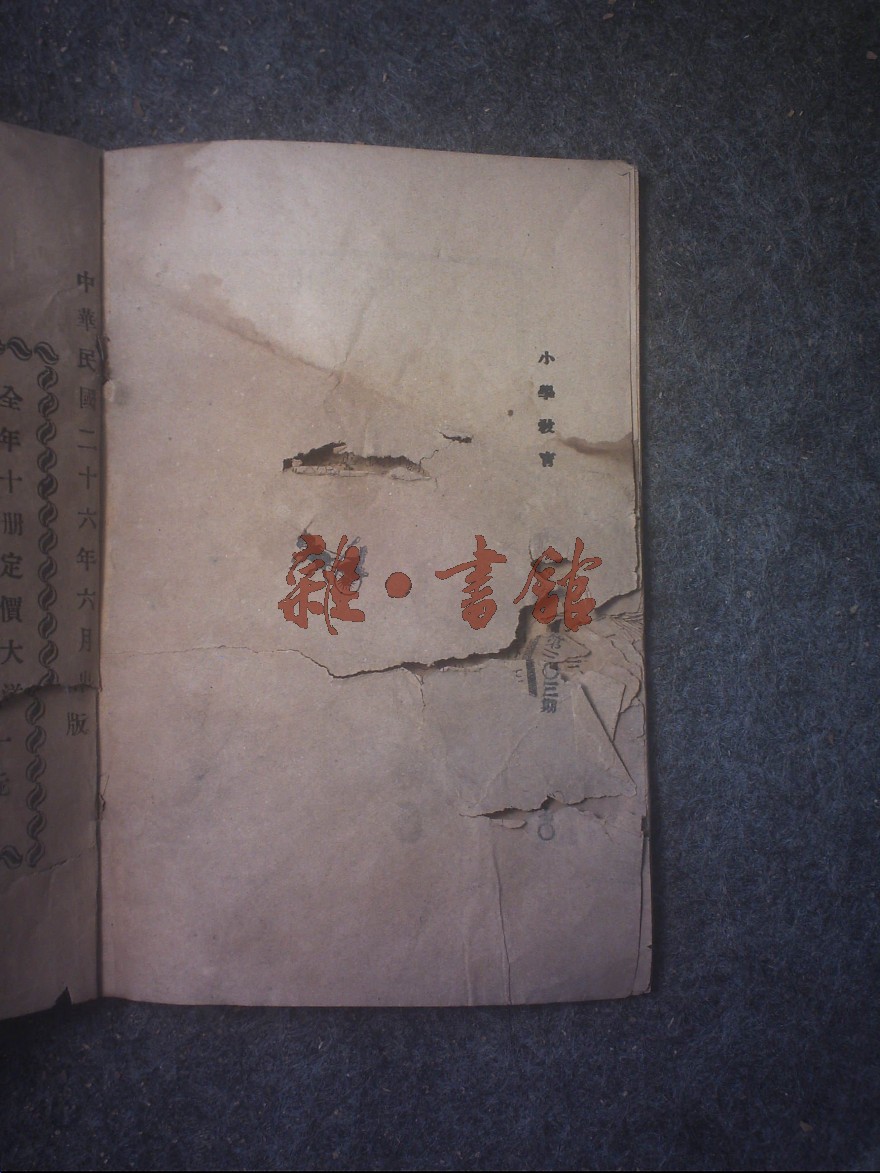 小學教育
期
〇
雜·書館
中華民國二十六年六月出版
全年十册定價大洋一元